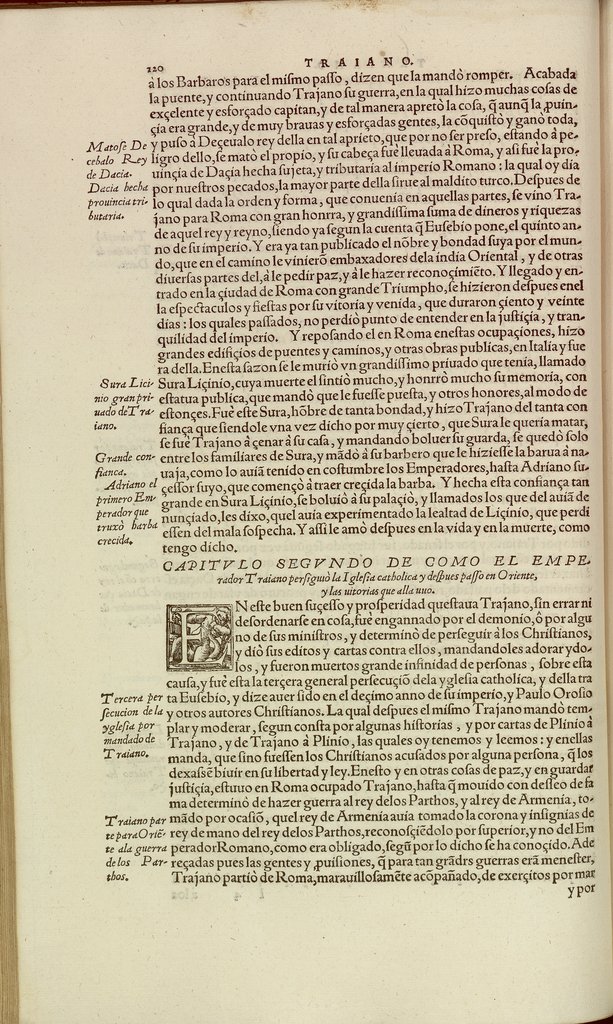 220
TRAIANO.
à los Barbaros para el miſmo paſſo, dizen que la mandò romper. Acabada
la puente, y continuando Trajano ſu guerra, en la qual hizo muchas coſas de
exçelente y esforçado capitan, y de tal manera apretò la coſa, q̃ aunq̃ la ꝓuin-
çia era grande, y de muy brauas y esforçadas gentes, la cõquiſtò y ganò toda,
Matoſe De
cebalo Rey
de Dacia.
Dacia hecha
prouincia tri-
butaria.
y puſo à Deçeualo rey della en tal aprieto, que por no ſer preſo, eſtando à pe-
ligro dello, ſe mató el propio, y ſu cabeça fue lleuada à Roma, y aſsi fue la pro-
uinçia de Daçia hecha ſujeta, y tributaria al imperio Romano : la qual oy dia
por nueſtros pecados, la mayor parte della ſirue al maldito turco. Deſpues de
lo qual dada la orden y forma, que conuenia en aquellas partes, ſe vino Tra-
jano para Roma con gran honrra, y grandiſsima ſuma de dineros y riquezas
de aquel rey y reyno, ſiendo ya ſegun la cuenta q̃ Euſebio pone, el quinto an-
no de ſu imperio. Y era ya tan publicado el nõbre y bondad ſuya por el mun-
do, que en el camino le vinierõ embaxadores dela india Oriental, y de otras
diuerſas partes del, à le pedir paz, y à le hazer reconoçimiẽto. Y llegado y en-
trado en la çiudad de Roma con grande Triumpho, ſe hizieron deſpues enel
la eſpectaculos y fieſtas por ſu vitoria y venida, que duraron çiento y veinte
dias : los quales paſſados, no perdiò punto de entender en la juſtiçia, y tran-
quilidad del imperio. Y repoſando el en Roma eneſtas ocupaçiones, hizo
grandes edifiçios de puentes y caminos, y otras obras publicas, en Italia y fue
ra della. Eneſta ſazon ſe le murió vn grandiſsimo priuado que tenia, llamado
Sura Lici-
nio gran pri-
uado de Tra-
iano.
Sura Liçinio, cuya muerte el ſintiò mucho, y honrrò mucho ſu memoria, con
eſtatua publica, que mandò que le fueſſe pueſta, y otros honores, al modo de
eſtonçes. Fuè eſte Sura, hõbre de tanta bondad, y hizo Trajano del tanta con
fiança que ſiendole vna vez dicho por muy çierto, que Sura le queria matar,
ſe fue Trajano à çenar à ſu caſa, y mandando boluer ſu guarda, ſe quedó ſolo
Grande con-
fianca.
Adriano el
primero Em-
perador que
truxò barba
crecida.
entre los familiares de Sura, y mãdó à ſu barbero que le hizieſſe la barua à na-
uaja, como lo auià tenido en coſtumbre los Emperadores, haſta Adriano ſu-
çeſſor ſuyo, que començò à traer creçida la barba. Y hecha eſta confiança tan
grande en Sura Liçinio, ſe boluiò à ſu palaçio, y llamados los que del auiã de
nunçiado, les dixo, quel auia experimentado la lealtad de Liçinio, que perdi
eſſen del mala ſoſpecha. Y aſsi le amò deſpues en la vida y en la muerte, como
tengo dicho.
CAPITVLO SEGVNDO DE COMO EL EMPE-
rador Traiano perſiguió la Igleſia catholica y deſpues paſſo en Oriente,
y las uitorias que alla uuo.
EN eſte buen ſuçeſſo y proſperidad queſtaua Trajano, ſin errar ni
deſordenarſe en coſa, fuè engannado por el demonio, ô por algu
no de ſus miniſtros, y determinò de perſeguir à los Chriſtianos,
y diò ſus editos y cartas contra ellos, mandandoles adorar ydo-
los, y fueron muertos grande infinidad de perſonas, ſobre eſta
cauſa, y fuè eſta la terçera general perſecuçiõ dela ygleſia catholica, y della tra
Tercera per
ſecucion de la
ygleſia por
mandado de
Traiano.
ta Euſebio, y dize auer ſido en el deçimo anno de ſu imperio, y Paulo Oroſio
y otros autores Chriſtianos. La qual deſpues el miſmo Trajano mandò tem-
plar y moderar, ſegun conſta por algunas hiſtorias, y por cartas de Plinio à
Trajano, y de Trajano à Plinio, las quales oy tenemos y leemos : y enellas
manda, que ſino fueſſen los Chriſtianos acuſados por alguna perſona, q̃ los
dexaſsẽ biuir en ſu libertad y ley. Eneſto y en otras coſas de paz, y en guardar
juſtiçia, eſtuuo en Roma ocupado Trajano, haſta q̃ mouido con deſſeo de fa
ma determinò de hazer guerra al rey delos Parthos, y al rey de Armenia, to-
Traiano par
te para Oriẽ-
te ala guerra
de los Par-
thos.
mãdo por ocaſiõ, quel rey de Armenia auia tomado la corona y inſignias de
rey de mano del rey delos Parthos, reconoſçiẽdolo por ſuperior, y no del Em
perador Romano, como era obligado, ſegũ por lo dicho ſe ha conoçido. Ade
reçadas pues las gentes y ꝓuiſiones, q̃ para tan grãdrs guerras erã meneſter,
Trajano partiò de Roma, marauilloſamẽte acõpañado, de exerçitos por mar
y por